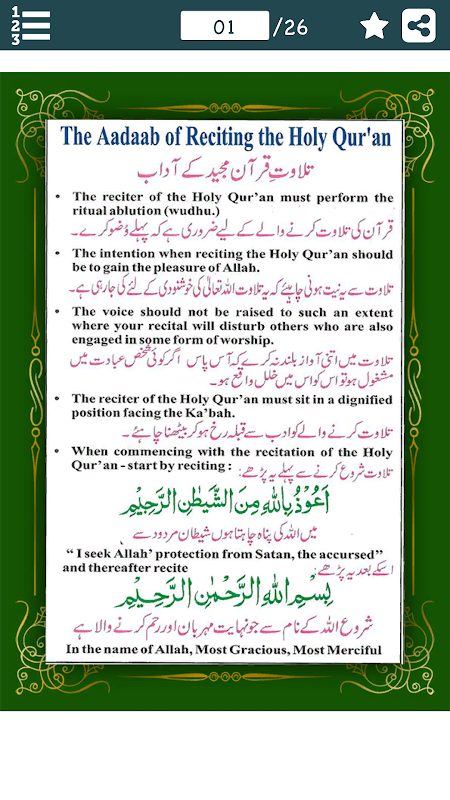 1
2
3
01 /26
The Aadaab of Reciting the Holy Qur'an
تلاوتِ قرآن مجید کے آداب
• The reciter of the Holy Qur'an must perform the
ritual ablution (wudhu.)
قرآن کی تلاوت کرنے والے کے لیے ضروری ہے کہ پہلے وُضو کرے۔
• The intention when reciting the Holy Qur'an should
be to gain the pleasure of Allah.
تلاوت سے یہ نیت ہونی چاہیئے کہ یہ تلاوت اللہ تعالیٰ کی خوشنودی کے لئے کی جارہی ہے۔
• The voice should not be raised to such an extent
where your recital will disturb others who are also
engaged in some form of worship.
تلاوت میں اتنی آواز بلند نہ کرے کہ آس پاس اگر کوئی شخص عبادت میں
مشغول ہو تو اس کو اس میں خلل واقع ہو۔
• The reciter of the Holy Qur'an must sit in a dignified
position facing the Ka'bah.
تلاوت کرنے والے کو ادب سے قبلہ رخ ہو کر بیٹھنا چاہئے۔
• When commencing with the recitation of the Holy
Qur'an - start by reciting : تلاوت شروع کرنے سے پہلے یہ پڑھے:
اَعُوْذُ بِاللّٰهِ مِنَ الشَّيْطٰنِ الرَّجِيْمِ
میں اللہ کی پناہ چاہتا ہوں شیطان مردود سے
“ I seek Allah’ protection from Satan, the accursed”
and thereafter recite اسکے بعد یہ پڑھے:
بِسْمِ اللّٰهِ الرَّحْمٰنِ الرَّحِيْمِ
شروع اللہ کے نام سے جو نہایت مہربان اور رحم کرنے والا ہے
In the name of Allah, Most Gracious, Most Merciful